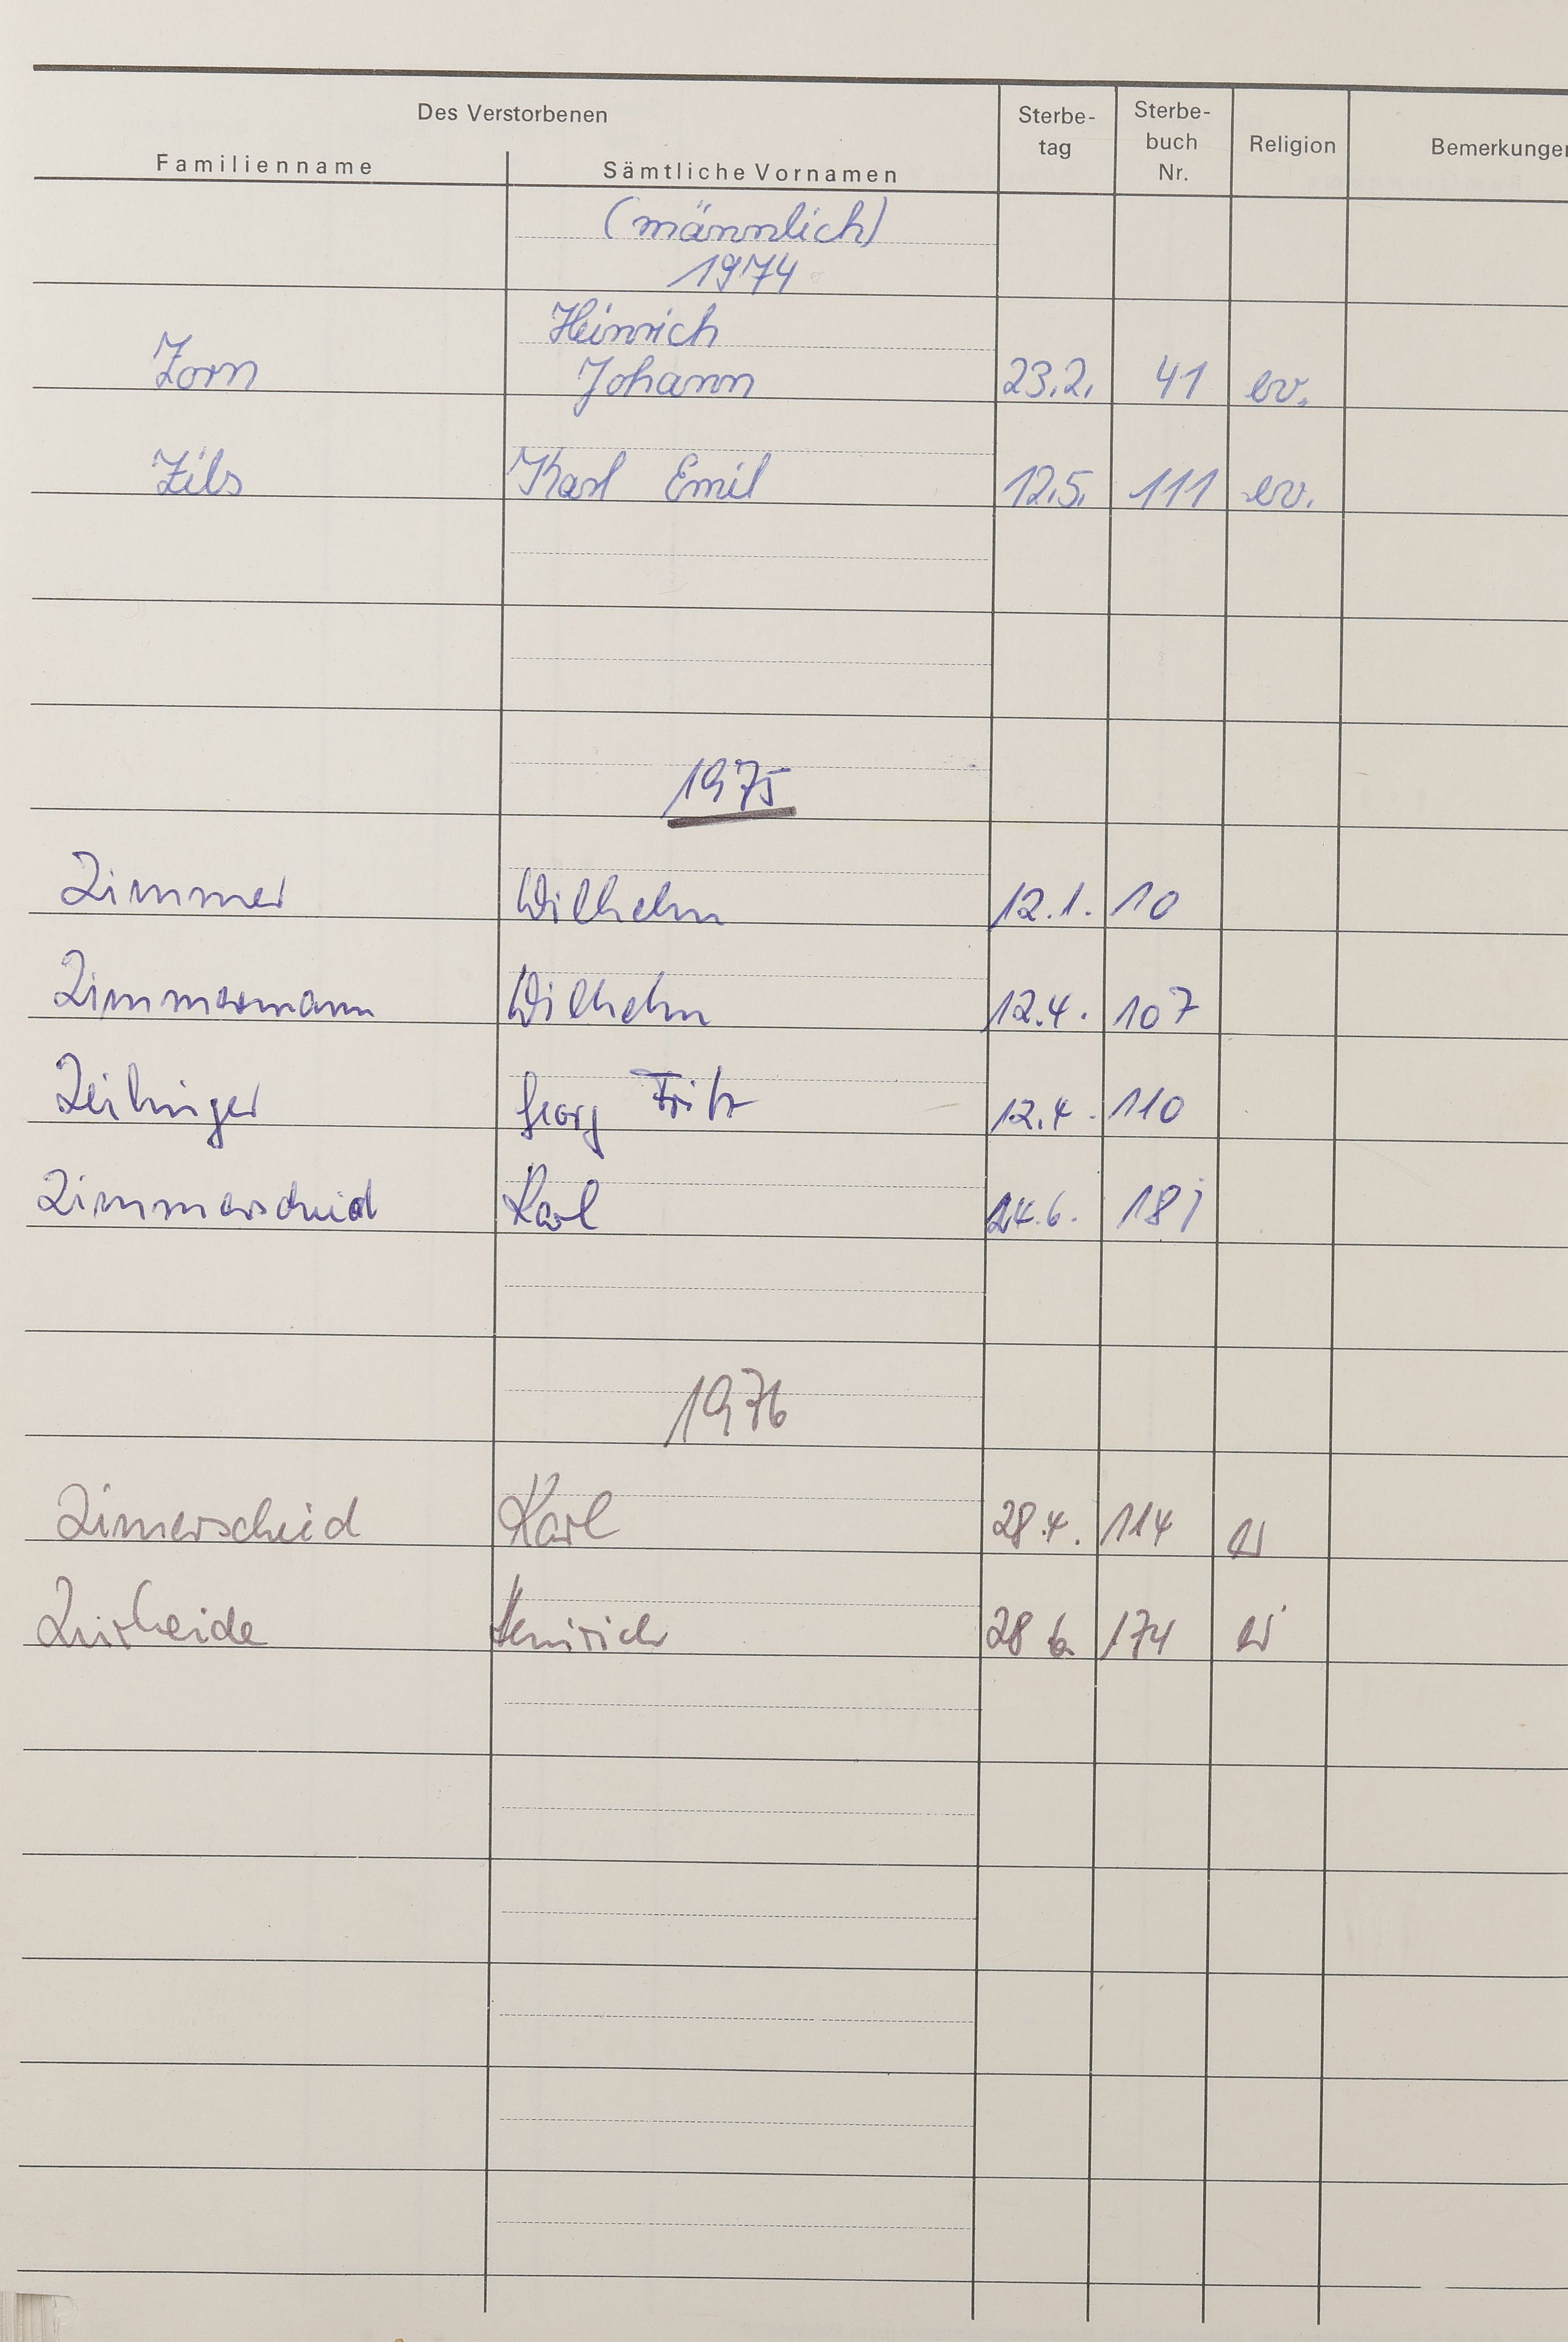 Des Verstorbenen
Familienname Sämtliche Vornamen Sterbe-tag Sterbe-buch Nr. Religion Bemerkungen
(männlich)
1974
Heinrich
Zorn Johann 23.2. 41 ev.
Zils Karl Emil 12.5. 111 ev.
1975
Zimmer Wilhelm 12.1. 10
Zimmermann Wilhelm 12.4. 107
Georg Fritz 12.4. 110
Zimmerscheid Karl 24.6.
1976
Zimerscheid Karl 28.4. 114 ev
Zurheide Heinrich 28 6. 174 ev